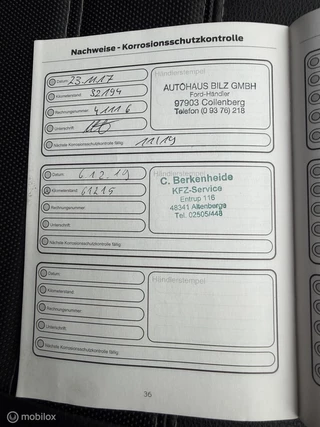 Nachweise - Korrosionsschutzkontrolle
Datum: 23 11 17
Kilometerstand: 32194
Rechnungsnummer: 41116
Unterschrift:
Nächste Korrosionsschutzkontrolle fällig: 11/19
Händlerstempel
AUTOHAUS BILZ GMBH
Ford-Händler
97903 Collenberg
Telefon (0 93 76) 218
Datum: 6.12.19
Kilometerstand: 61215
Rechnungsnummer:
Unterschrift:
Nächste Korrosionsschutzkontrolle fällig:
Händlerstempel
C. Berkenheide
KFZ-Service
Entrup 116
48341 Altenberge
Tel. 02505/448
Datum:
Kilometerstand:
Rechnungsnummer:
Unterschrift:
Nächste Korrosionsschutzkontrolle fällig:
Händlerstempel
36
© mobilox